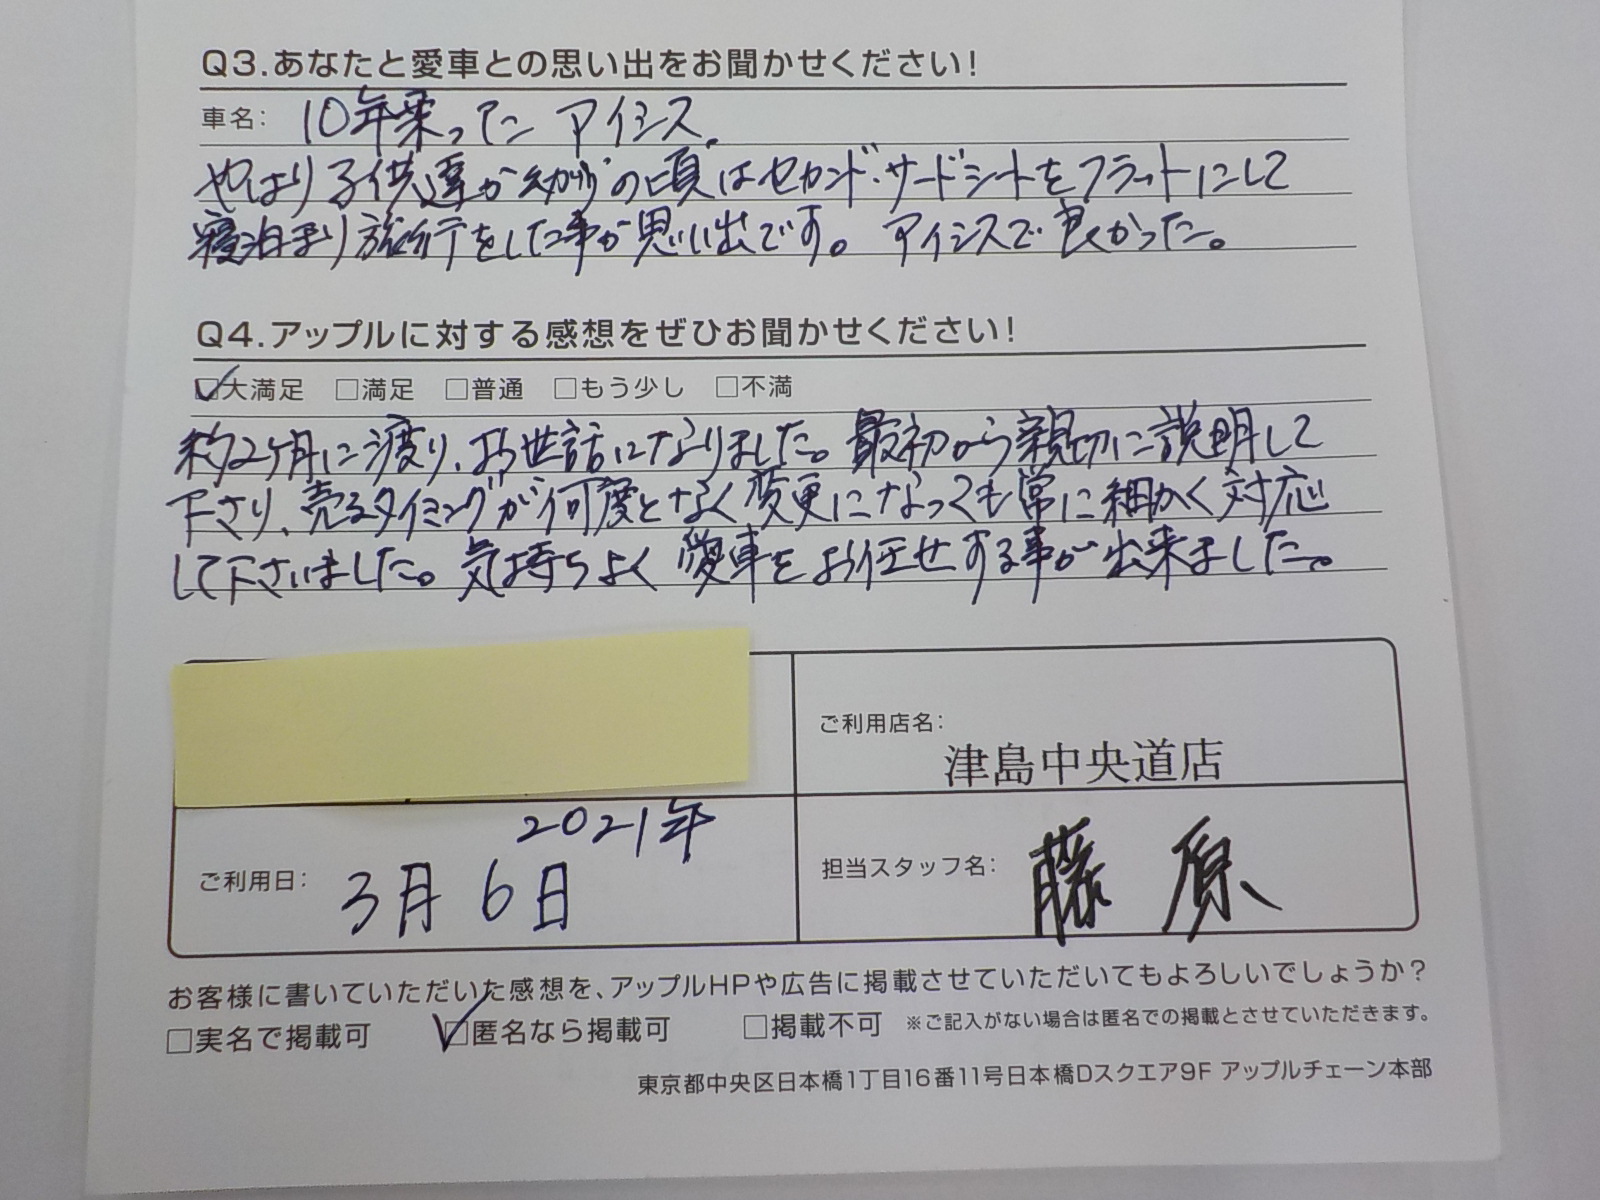 Q3.あなたと愛車との思い出をお聞かせください!
車名: 10年乗ってた アイシス.
やはり子供達が幼少の頃はセカンド・サードシートをフラットにして
寝泊まり旅行をした事が思い出です。 アイシスで良かった。
Q4.アップルに対する感想をぜひお聞かせください!
☑大満足 □満足 □普通 □もう少し □不満
約2ケ月に渡り、お世話になりました。最初から親切に説明して
下さり、売るタイミングが何度となく変更になっても常に細かく対応
して下さいました。気持ちよく愛車をお任せする事が出来ました。
ご利用店名:
津島中央道店
2021年
ご利用日: 3月6日
担当スタッフ名: 藤原
お客様に書いていただいた感想を、アップルHPや広告に掲載させていただいてもよろしいでしょうか?
□実名で掲載可 ☑匿名なら掲載可 □掲載不可 ※ご記入がない場合は匿名での掲載とさせていただきます。
東京都中央区日本橋1丁目16番11号日本橋Dスクエア9F アップルチェーン本部